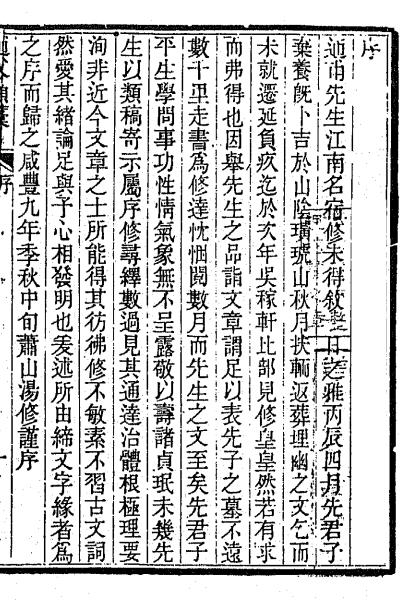 序
逌甫先生江南名宿修未得敘一日之雅丙辰四月先君子
棄養旣卜吉於山陰璜琥山秋月扶輀返葬埋幽之文乞而
未就遷延負疚迄於次年吳稼軒比部見修皇皇然若有求
而弗得也因舉先生之品詣文章謂足以表先子之墓不遠
數十里走書爲修達忱悃閱數月而先生之文至矣先君子
平生學問事功性情氣象無不呈露敬以壽諸貞珉未幾先
生以類稿寄示屬序修尋繹數過見其通達治體根極理要
洵非近今文章之士所能得其彷彿修不敏素不習古文詞
然愛其緖論足與予心相發明也爰述所由締文字緣者爲
之序而歸之咸豐九年季秋中旬蕭山湯修謹序
序